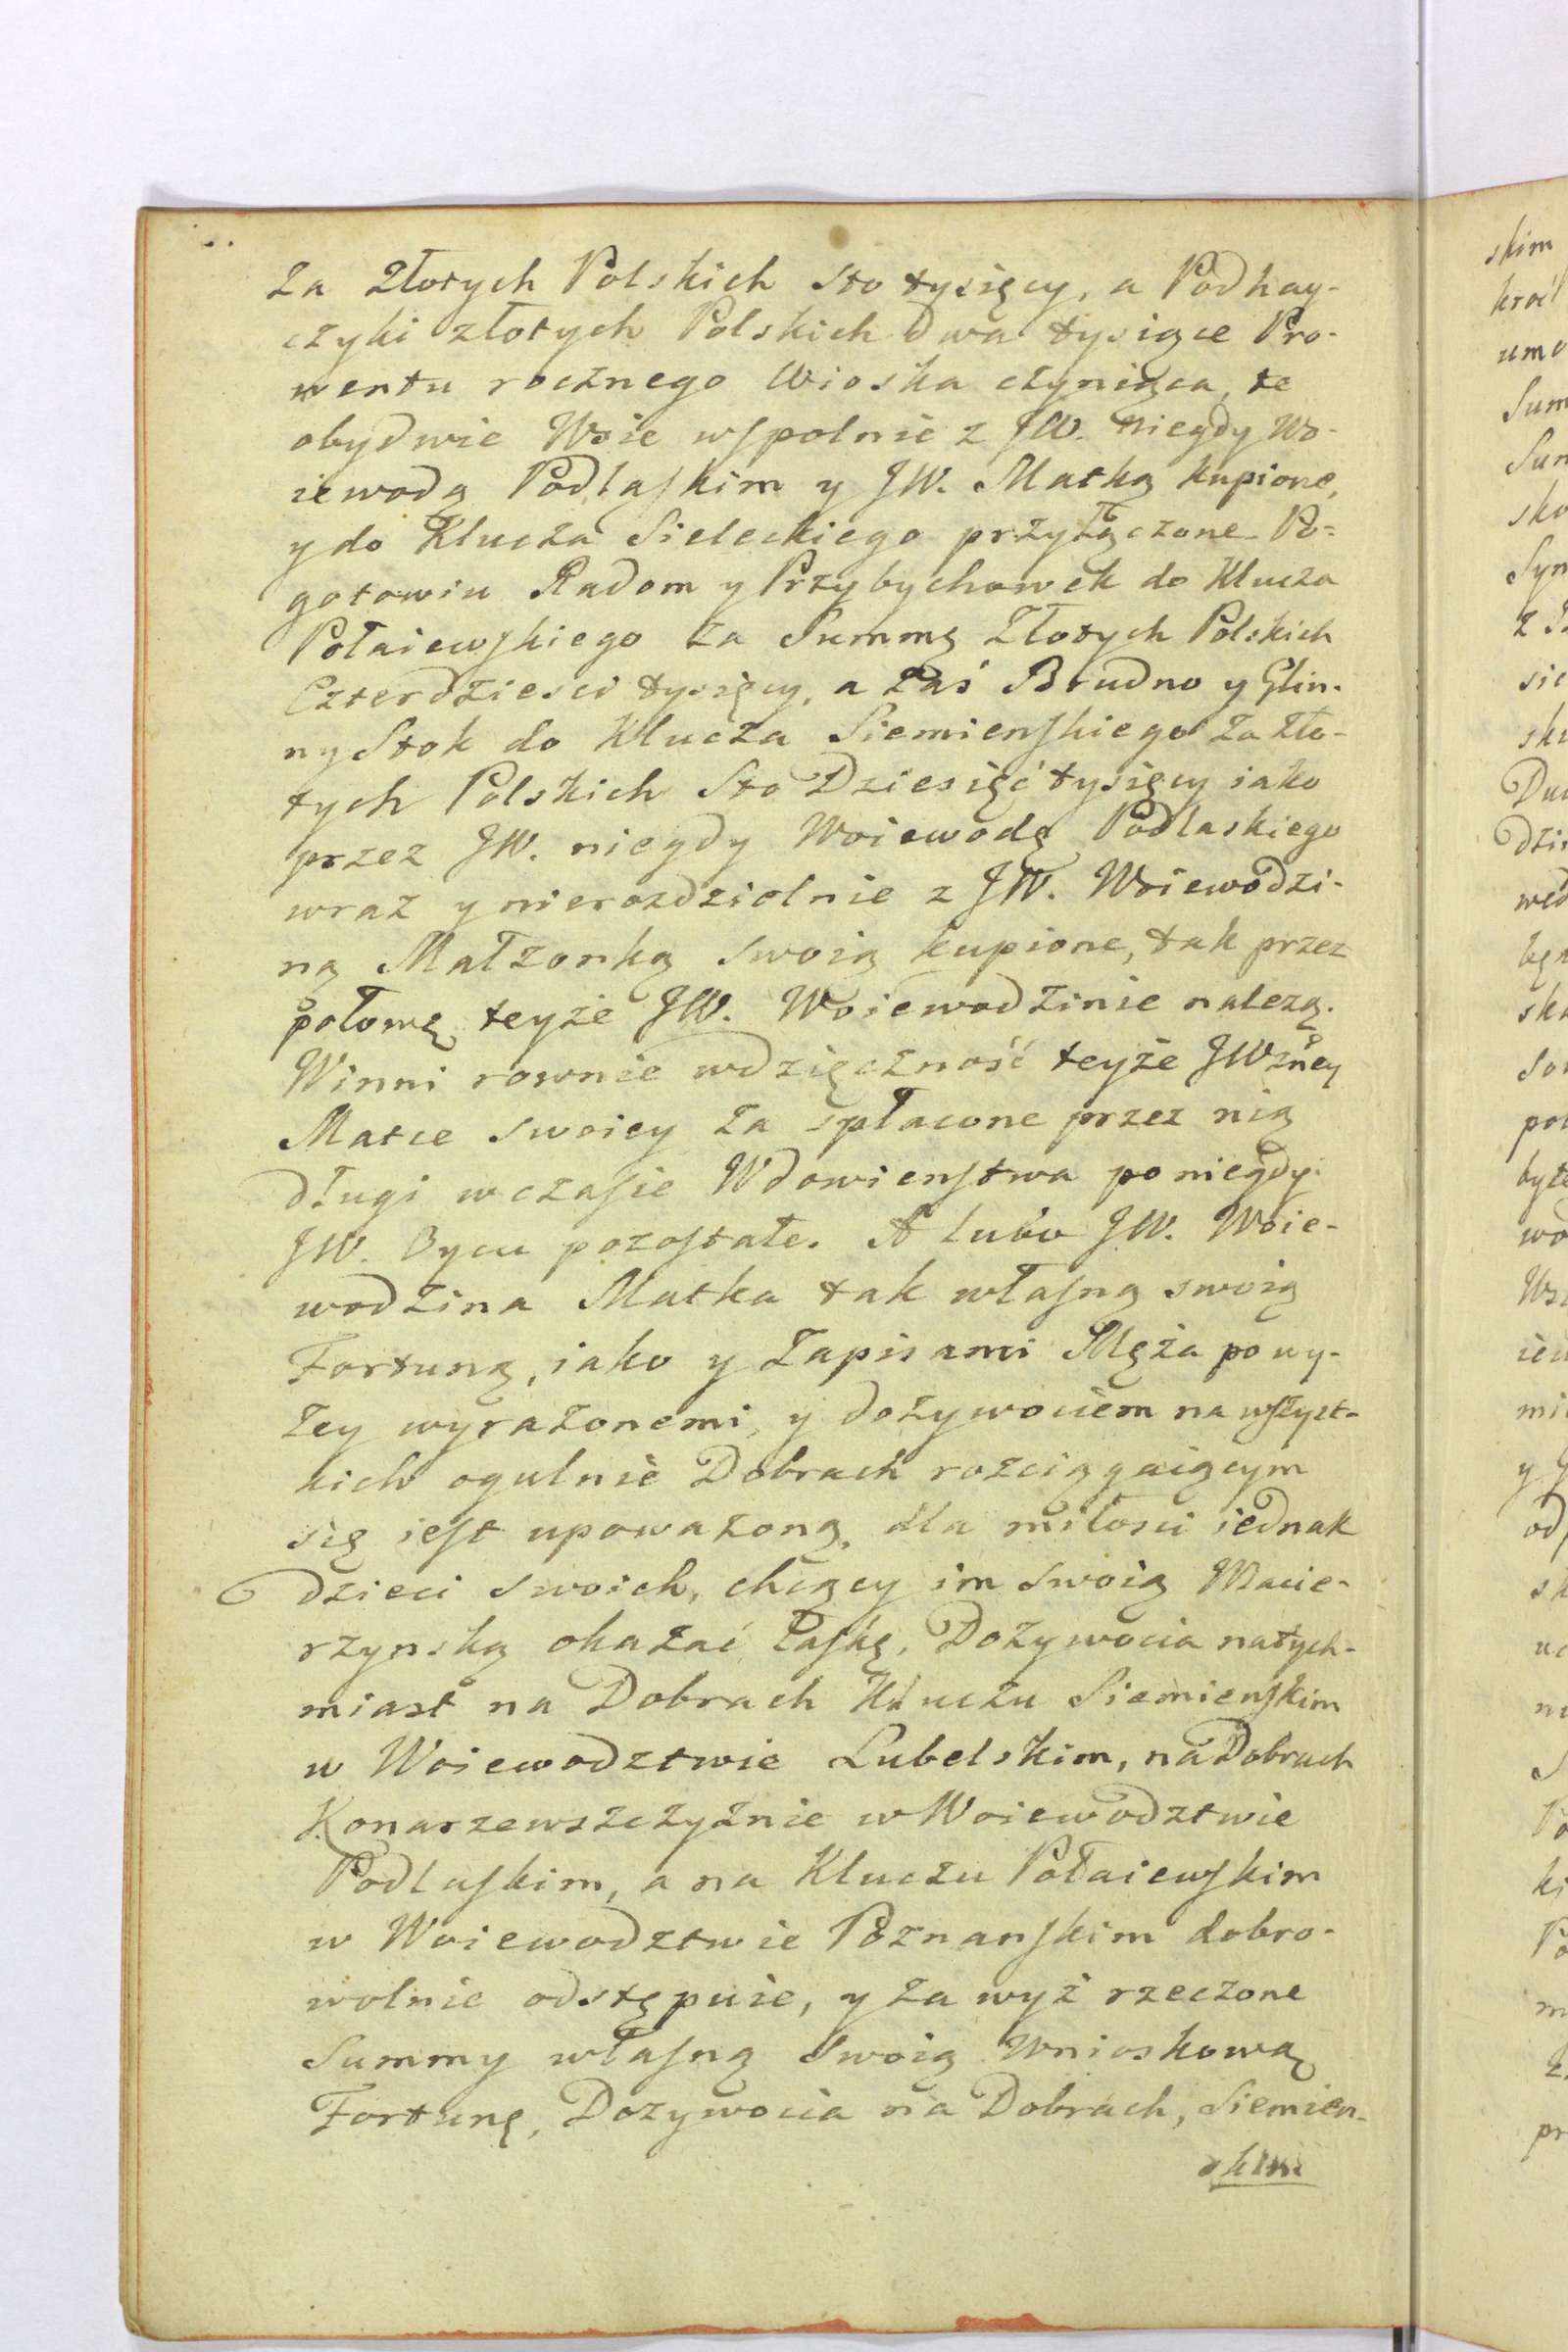 Za Złotych Polskich Sto tysięcy, a Podhay-
czyki złotych Polskich dwa tysiące Pro-
wentu rocznego Wioska czyniąca, te
obydwie Wsie wspolnie z JW. niegdy Wo-
iewodą Podlaskim y JW. Matką kupione,
y do Klucza Sieleckiego przyłączone Po-
gotowiu Radom y Przybychowek do Klucza
Połaiewskiego za Summę Złotych Polskich
Czterdziesci tysięcy, a zaś Brudno y Glin-
ny Stok do Klucza Siemienskiego za Zło-
tych Polskich Sto Dziesięć tysięcy iako
przez JW. niegdy Woiewodę Podlaskiego
wraz y nierozdzielnie z JW. Woiewodzi-
ną Małzonką swoią kupione, tak przez
połowę teyże JW. Woiewodzinie nalezą.
Winni rownie wdzięczność teyże JWzney
Matce swoiey za spłacone przez nią
długi w czasie Wdowienstwa po niegdy
JW. Oycu pozostałe. A lubo JW. Woie-
wodzina Matka tak własną swoią
Fortuną, iako y Zapisami Męża powy-
zey wyrazonemi, y dożywociem na wszyst-
kich ogulnie Dobrach rozciągaiącym
się iest upowazoną, dla miłosci iednak
dzieci swoich, chcący im swoią Macie-
rzynską okazać łaskę, Dożywocia natych-
miast na Dobrach Kluczu Siemienskim
w Woiewodztwie Lubelskim, na Dobrach
Konarzewszczyznie w Woiewodztwie
Podlaskim, a na Kluczu Połaiewskim
w Woiewodztwie Poznanskim dobro-
wolnie odstępuie, y za wyż rzeczone
Summy własną swoią Wnioskową
Fortunę, Dozywocia na Dobrach, Siemien-
skim
skim